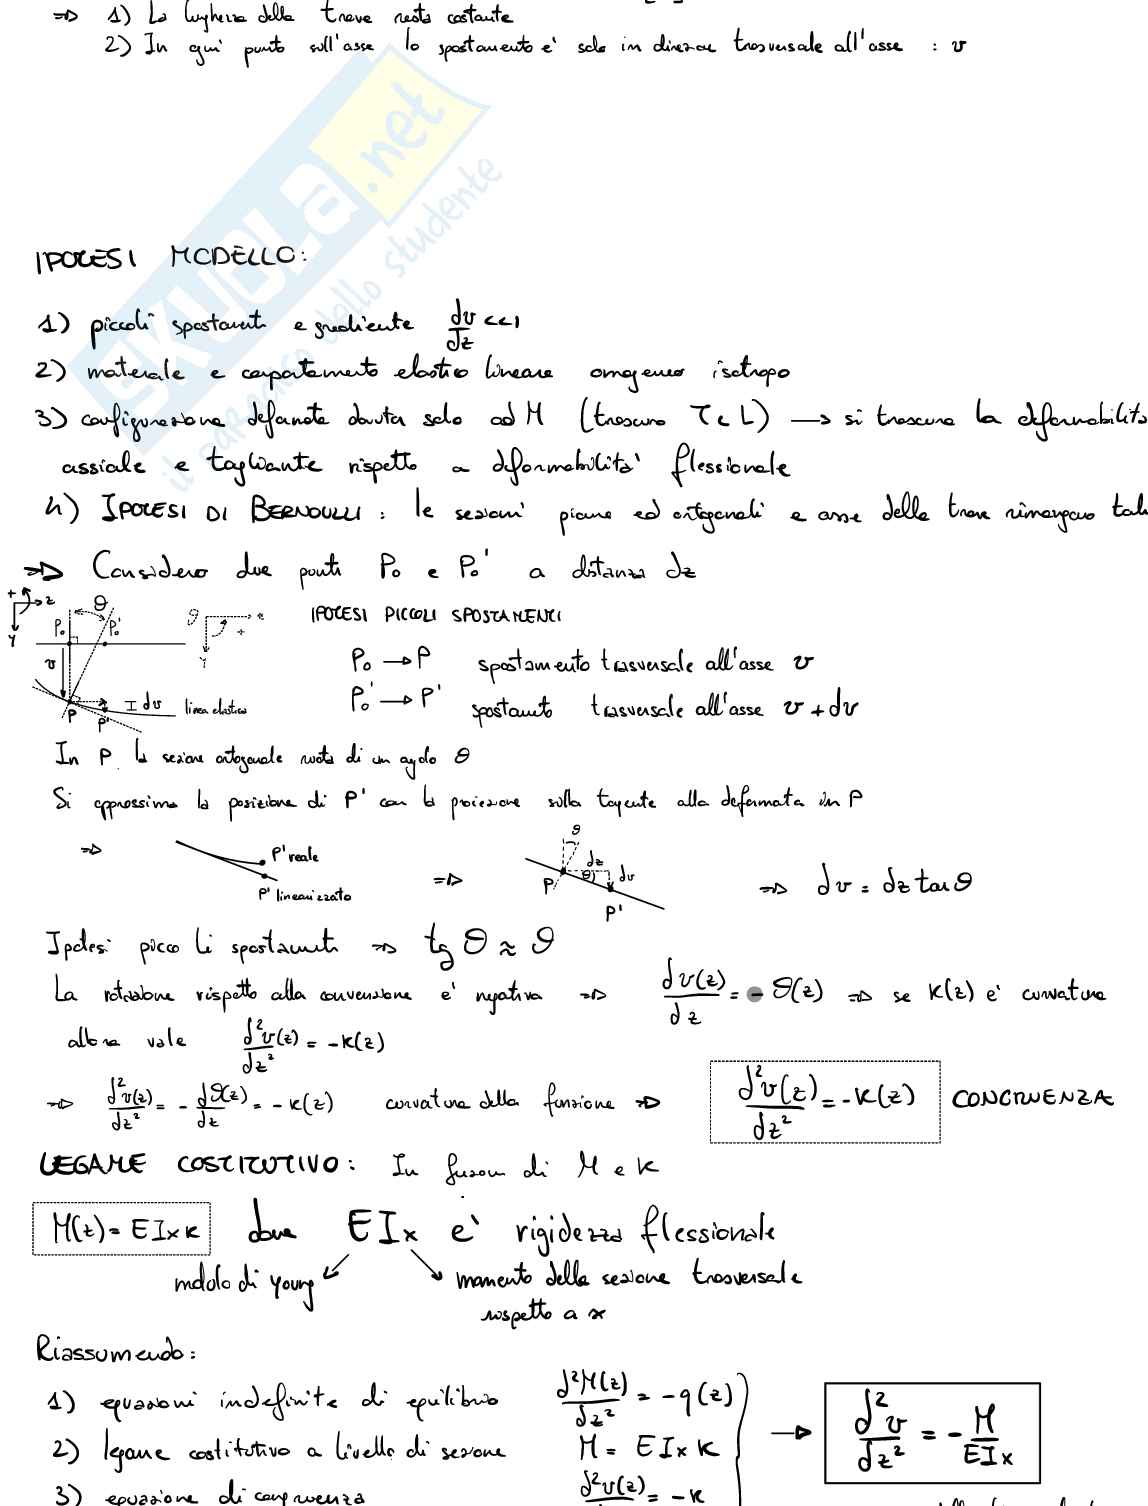 ⇒ 1) La lunghezza della trave resta costante
2) In ogni punto sull'asse lo spostamento e' solo in direzione trasversale all'asse : v
SKUOLA.net
il paradiso dello studente
IPOTESI MODELLO:
1) piccoli spostamenti e gradiente dv/dz <<1
2) materiale e comportamento elastico lineare omogeneo isotropo
3) configurazione deformata dovuta solo ad M (trascuro T e L) → si trascura la deformabilità
assiale e tagliante rispetto a deformabilità flessionale
4) IPOTESI DI BERNOULLI : le sezioni piane ed ortogonali a asse della trave rimangono tali
⇒ Considero due punti P₀ e P₀' a distanza dz
+ z θ
y P₀ P₀' v
ϑ z + y
I dv linea elastica
P P'
IPOTESI PICCOLI SPOSTAMENTI
P₀ → P spostamento trasversale all'asse v
P₀' → P' spostamento trasversale all'asse v + dv
In P la sezione ortogonale ruota di un angolo θ
Si approssima la posizione di P' con la proiezione sulla tangente alla deformata in P
⇒ P' reale
P' linearizzato
⇒ ϑ dz θ dv P P'
⇒ dv = dz tan ϑ
Ipotesi piccoli spostamenti ⇒ tg θ ≈ ϑ
La rotazione rispetto alla convenzione e' negativa ⇒ dv(z)/dz = - ϑ(z) ⇒ se κ(z) e' curvatura
allora vale d²v(z)/dz² = -κ(z)
⇒ d²v(z)/dz² = - dϑ(z)/dz = - κ(z) curvatura della funzione ⇒ d²v(z)/dz² = -κ(z) CONGRUENZA
LEGAME COSTITUTIVO: In funzione di M e κ
M(z) = EIx κ dove EIx e' rigidezza flessionale
modulo di young
momento della sezione trasversale
rispetto a x
Riassumendo:
1) equazioni indefinite di equilibrio d²M(z)/dz² = -q(z)
2) legame costitutivo a livello di sezione M = EIx κ → d²v/dz² = - M/EIx
3) equazione di congruenza d²v(z) = -κ